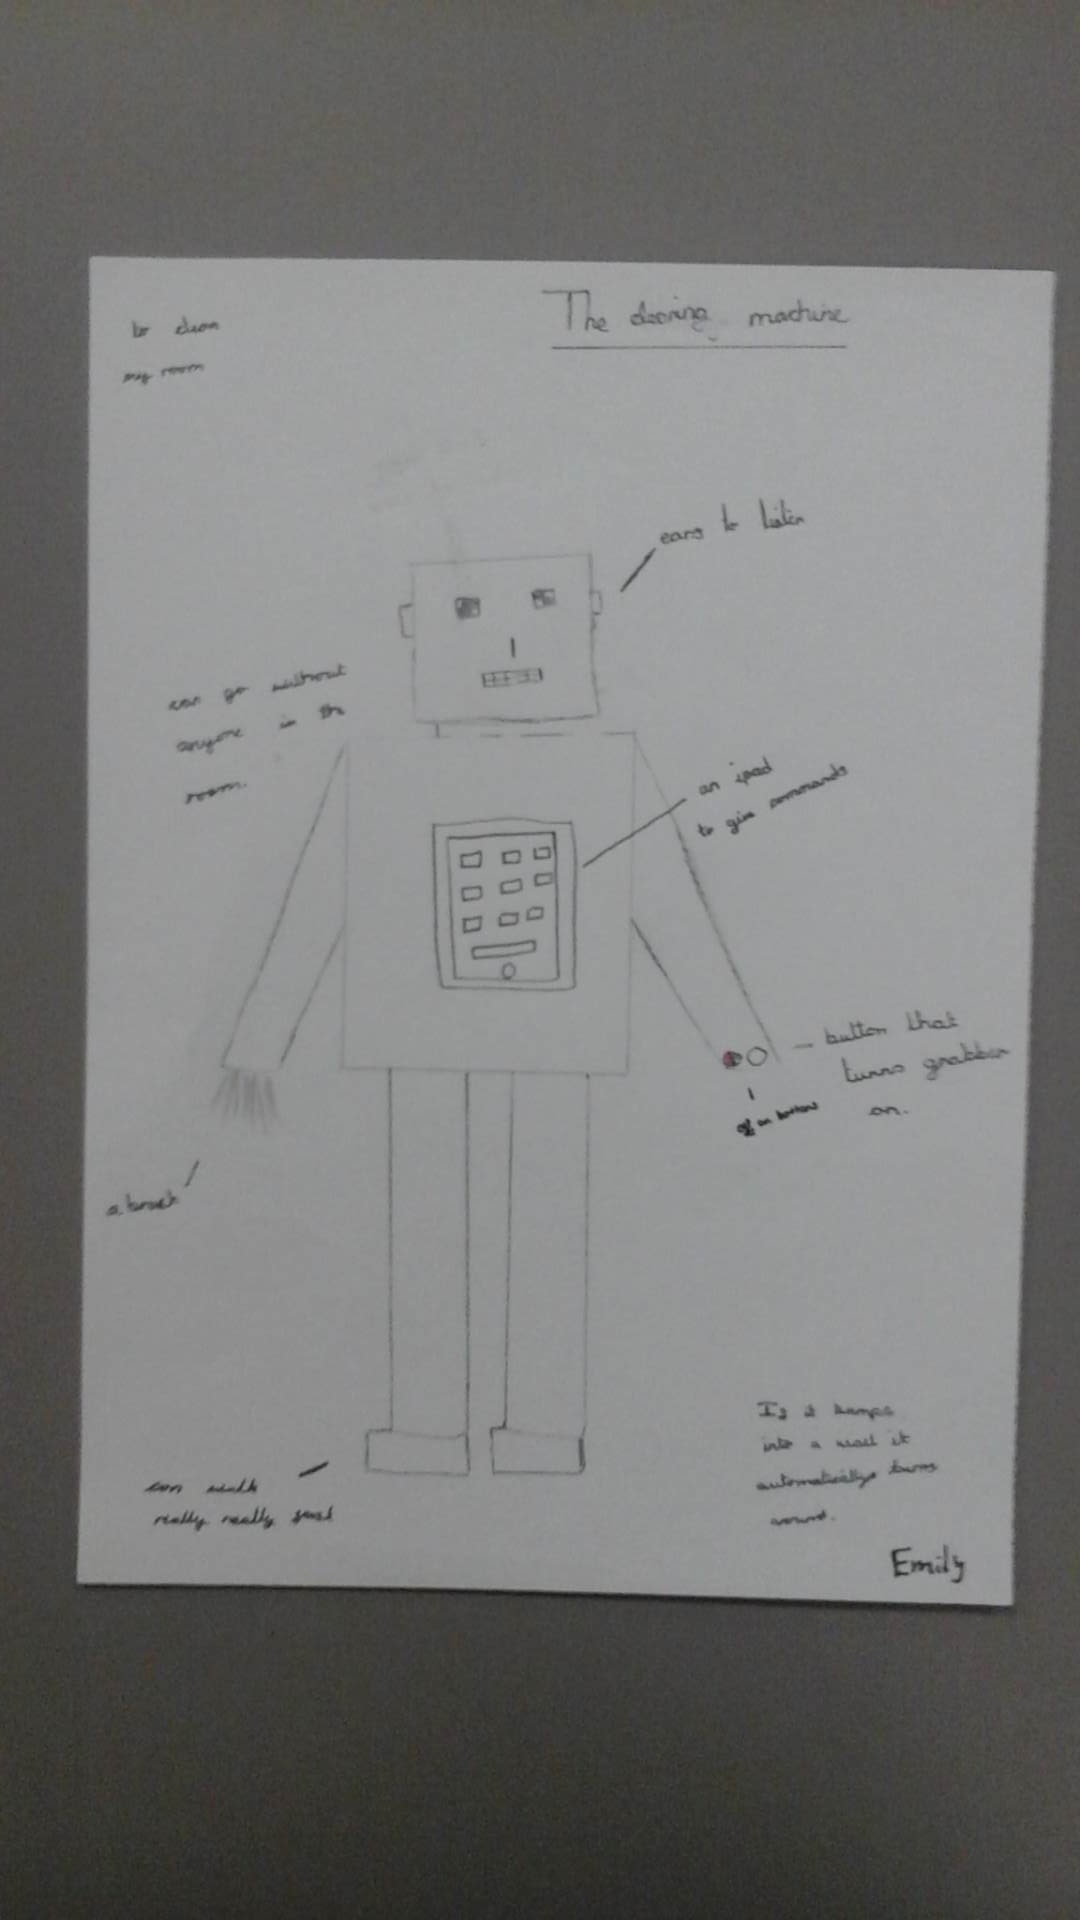 The cleaning machine
to clean
my room
ears to listen
can go without
anyone in the
room.
an ipad
to give commands
button that
turns grabber
on.
a brush
can walk
really really fast
If it bumps
into a wall it
automatically turns
around.
Emily